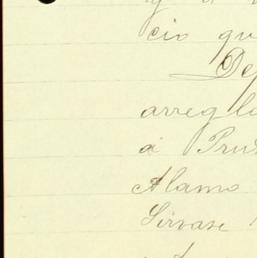 cio qu
Dep
arregla
á Pru
Alamo
Sirvase